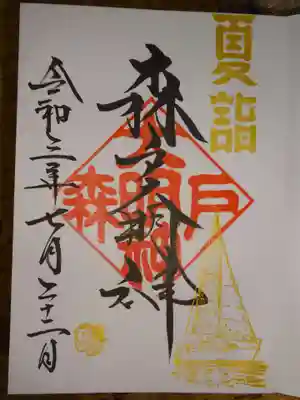 夏詣
森戸大明神
森戸
令和三年七月二十二日